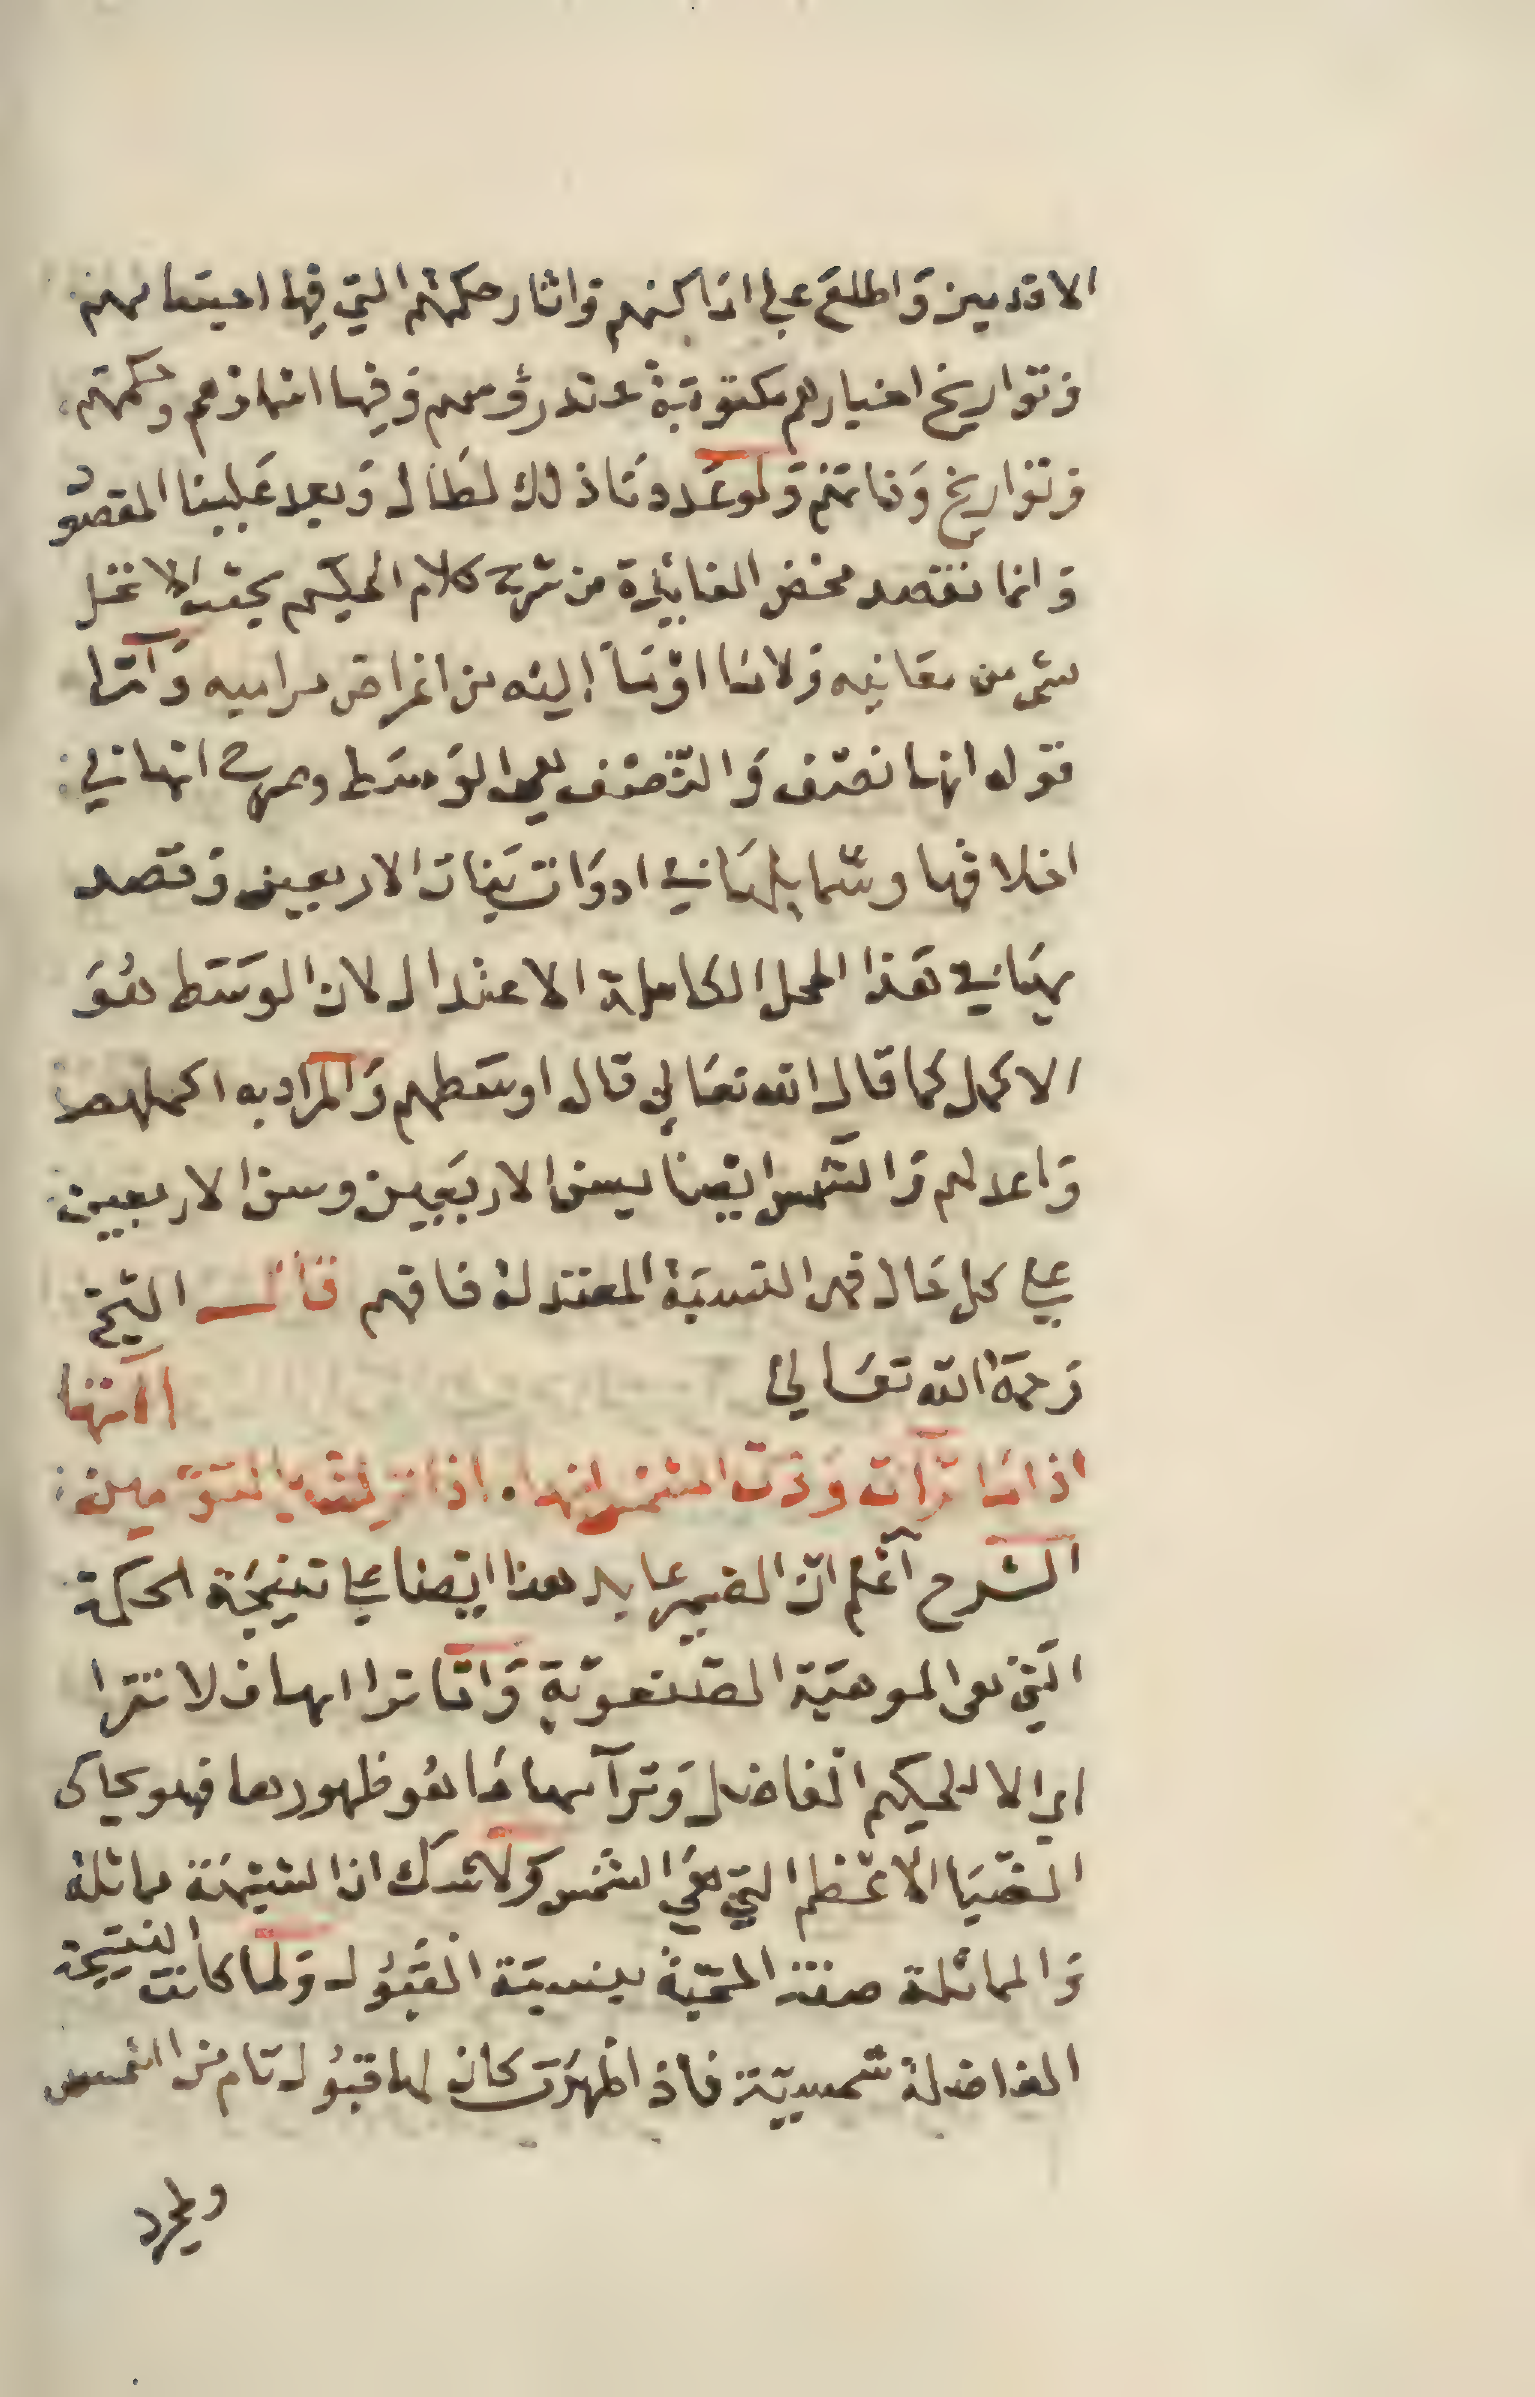 الاقدمين وَاطلعَ على اماكنهم وَاثار حكمتهم التي فيها اعينا لهم
وَتواريخ اخبارهم مكتوبَة عند رؤسهم وَفيها انماذهم وَحكمتهم
وَتواريخ وَفاتهم وَلوعَددنَا ذلك لطَال وَبعد عَلينا المقصود
وَانما نقصد محض الفائدة من شرح كلام الحكيم بحيث الا نخل
بشى من معَانيه وَلا ما اوْمَأ اليْه من اغراض مراميه وَامّا
قوله انها نصَف وَالنّصف هى الوَسَط وصرح انها في
اخلاقها وشمايلهَا في ادوَات بَنات الاربعين وَقصد
بهَا في هَذا المحل الكاملة الاعتدال لان الوَسَط هُوَ
الاكمل كما قال الله تعَالى قال اوسَطهم وَالمراد به اكملهم
وَاعدلهم وَالشمس ايضا بسن الاربَعين وسن الاربعين
على كل حَال فهى النسبَة المعتدلة فافهم قَال الشيخ
رَحمَة الله تعَالى
الانها
اذا مَا ترآت وَدت الشمس انها اذا
الشرح اعْلم انّ الضمير عايد هذا ايضا على نتيجَة الحكمة
التي هى الموهبَة الصّنعويّة وَامّا ترا ايها فلا تترا
اى الا للحكيم الفاضل وَترآيها مَا هُو ظهورها فهو يحاكى
الضّيَا الاعظم التي هيَ الشمس وَلا شك ان الشبهَة مماثلة
وَالمماثلة صفة المحبّة بنسبَة القَبُول وَلما كانت النتيجة
الفاضلة شمسيّة فاذ اظهرَت كان لها قبُول تام من الشمس
وطرد